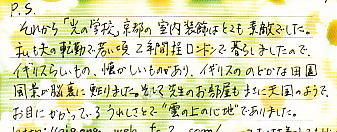 P.S.
それから「光の学校」京都の室内装飾はとても素敵でした。
私も夫の転勤で若い頃2年間程ロンドンで暮らしましたので、
イギリスらしいもの、懐かしいものがあり、イギリスののどかな田園
風景が脳裏に甦りました。そして先生のお部屋もまさに天国のようで、
お目にかかっているうれしさとで"雲の上の心地"でありました。